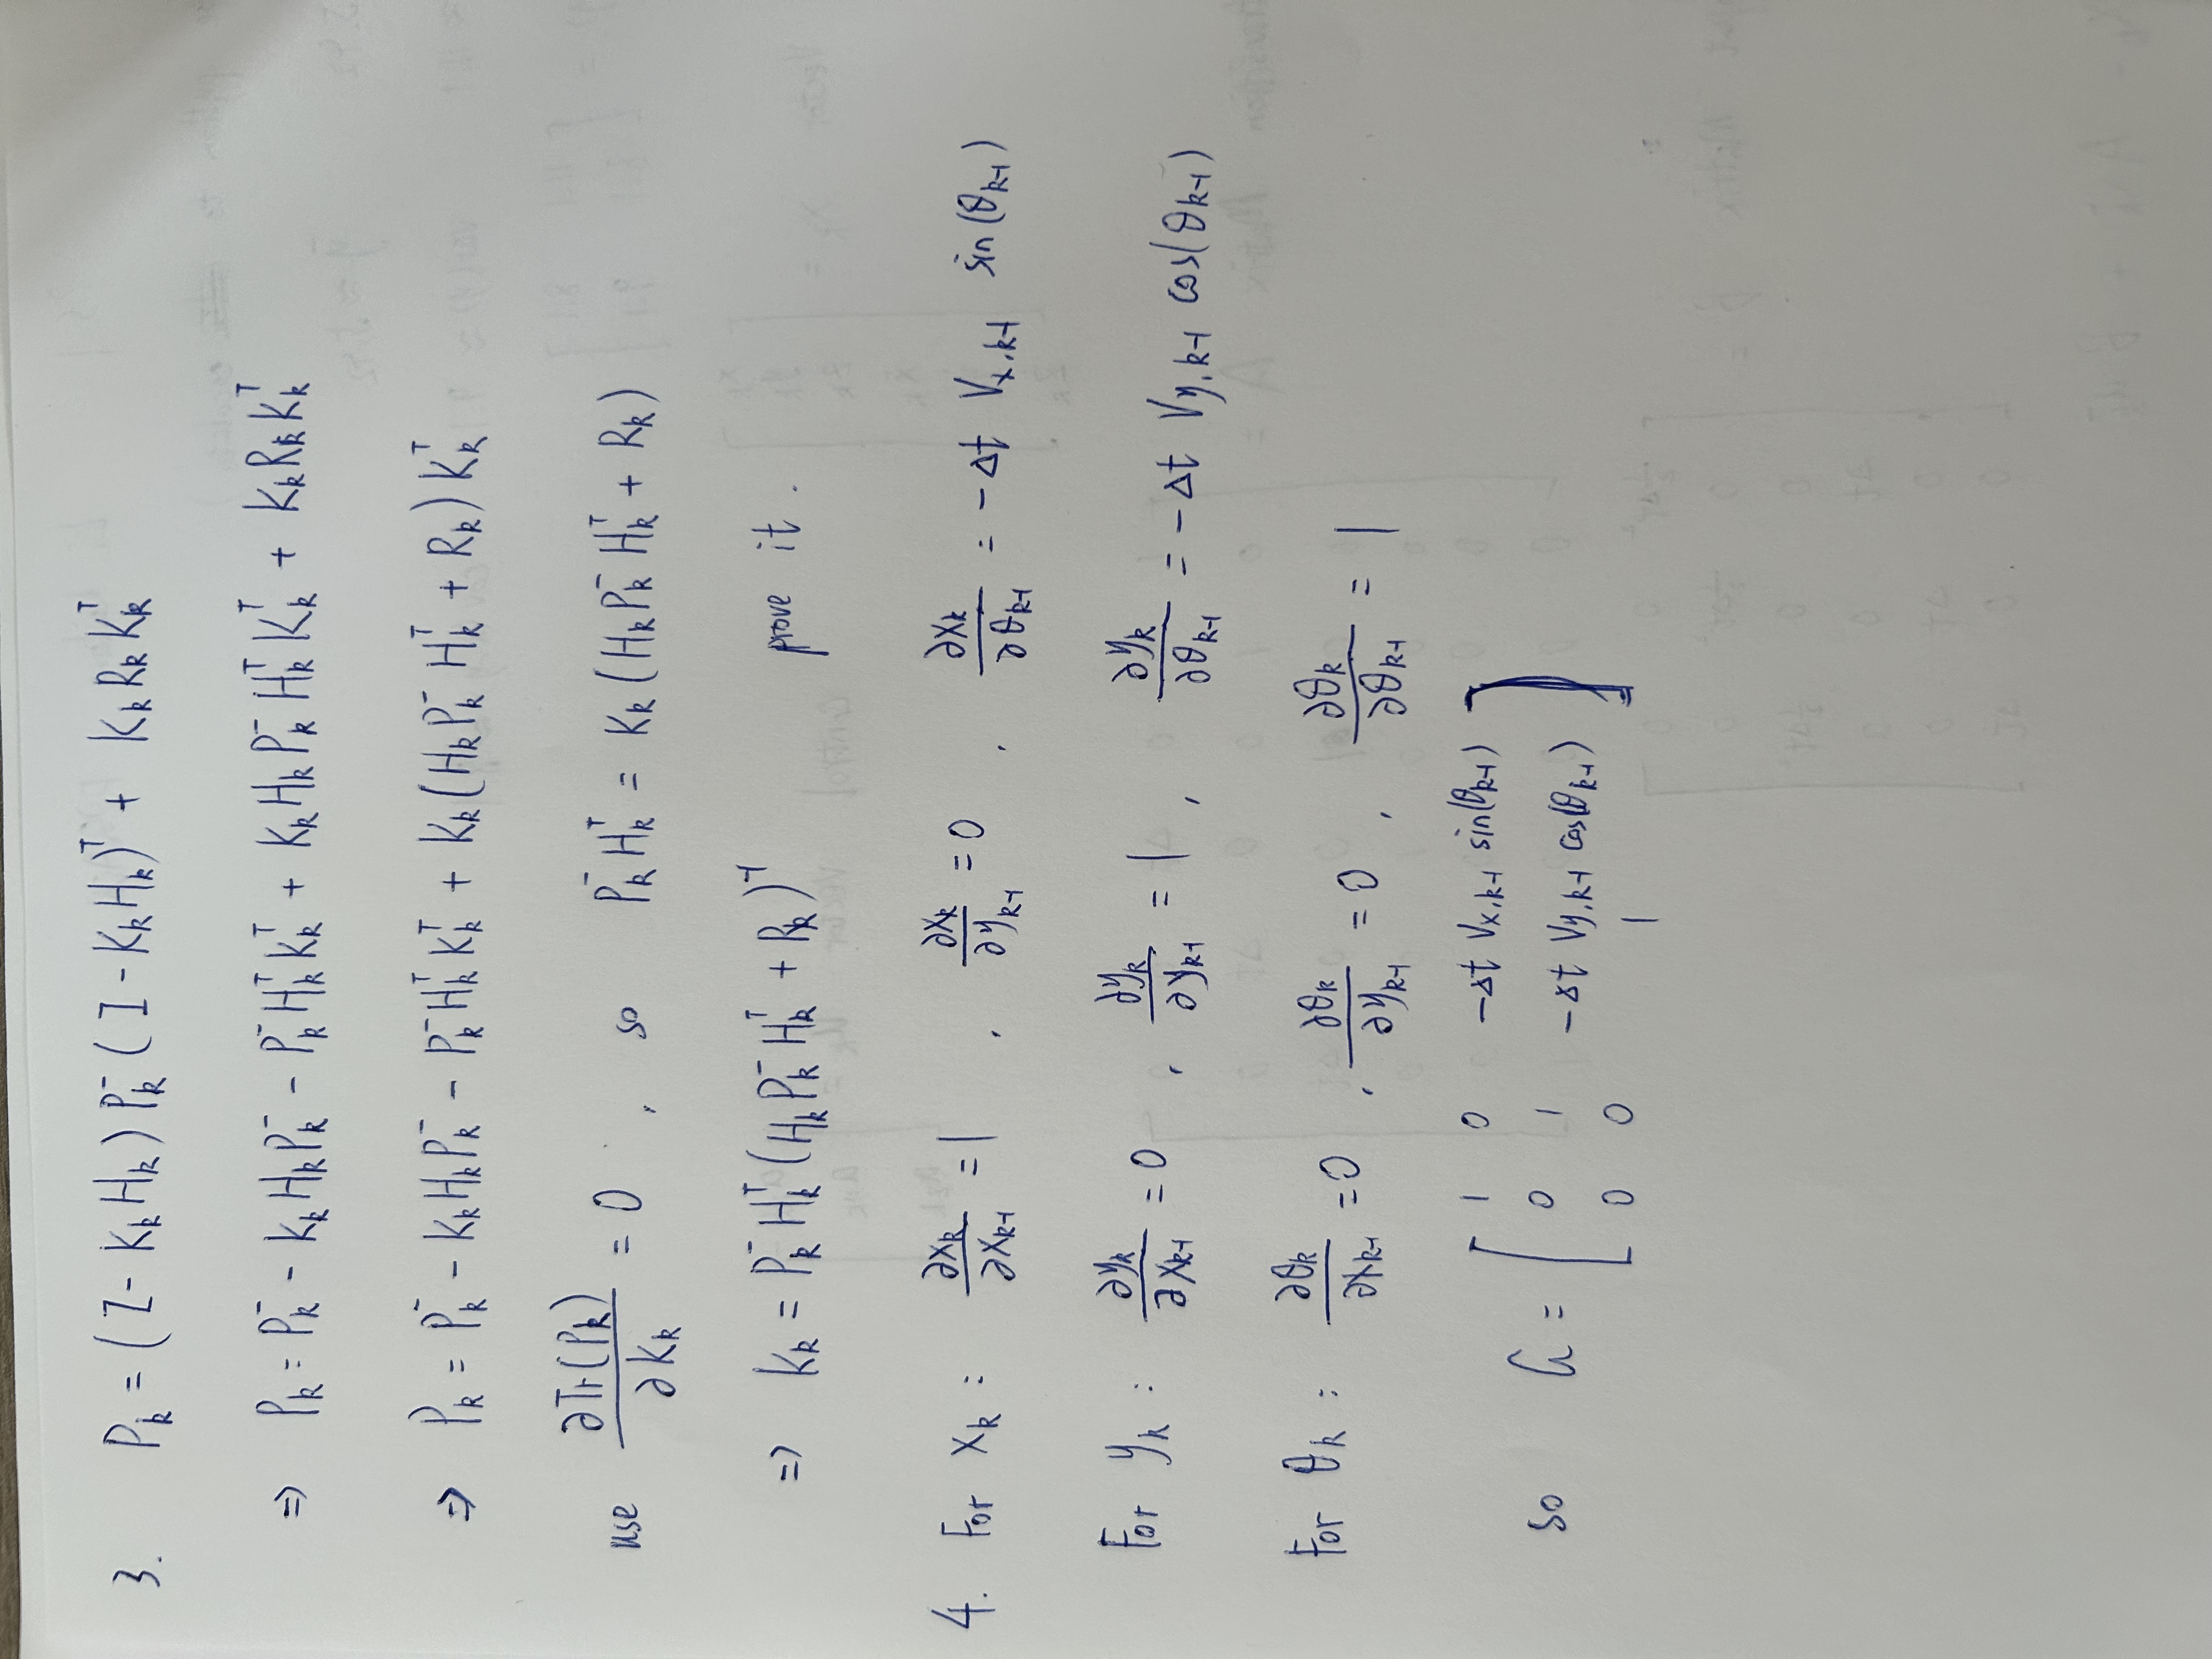 3. P_k = (I - K_k H_k) P_k^- (I - K_k H_k)^T + K_k R_k K_k^T
⇒ P_k = P_k^- - K_k H_k P_k^- - P_k^- H_k^T K_k^T + K_k H_k P_k^- H_k^T K_k^T + K_k R_k K_k^T
⇒ P_k = P_k^- - K_k H_k P_k^- - P_k^- H_k^T K_k^T + K_k (H_k P_k^- H_k^T + R_k) K_k^T
use ∂Tr(P_k)/∂K_k = 0 , so P_k^- H_k^T = K_k (H_k P_k^- H_k^T + R_k)
⇒ K_k = P_k^- H_k^T (H_k P_k^- H_k^T + R_k)^-1 prove it .
4. For x_k : ∂x_k/∂x_k-1 = 1 , ∂x_k/∂y_k-1 = 0 , ∂x_k/∂θ_k-1 = -Δt V_x,k-1 sin(θ_k-1)
For y_k : ∂y_k/∂x_k-1 = 0 , ∂y_k/∂y_k-1 = 1 , ∂y_k/∂θ_k-1 = -Δt V_y,k-1 cos(θ_k-1)
For θ_k : ∂θ_k/∂x_k-1 = 0 , ∂θ_k/∂y_k-1 = 0 , ∂θ_k/∂θ_k-1 = 1
so G = [ 1 0 -Δt V_x,k-1 sin(θ_k-1)
0 1 -Δt V_y,k-1 cos(θ_k-1)
0 0 1 ]